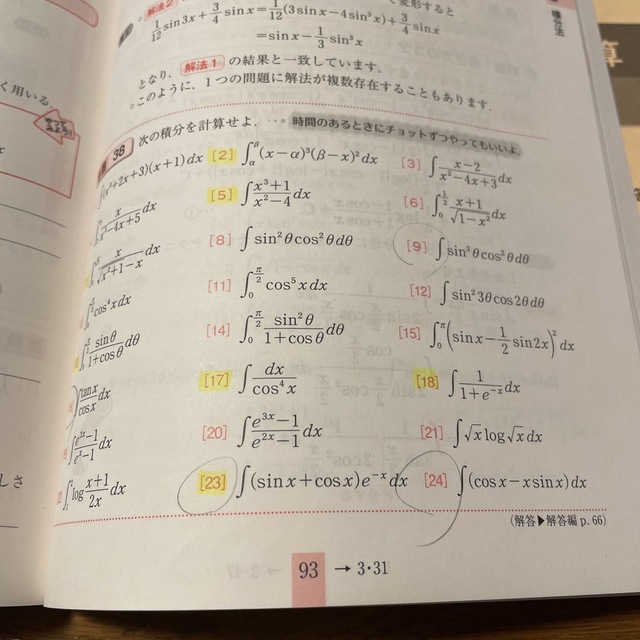 解法2
変形すると
1/12 sin3x + 3/4 sinx = 1/12(3sinx − 4sin³x) + 3/4 sinx
= sinx − 1/3 sin³x
となり, 解法1 の結果と一致しています.
このように, 1つの問題に解法が複数存在することもあります.
積分法
く用いる.
算
38 次の積分を計算せよ. 時間のあるときにチョットずつやってもいいよ.
∫(x²+2x+3)(x+1)dx [2] ∫_α^β (x−α)³(β−x)²dx [3] ∫ (x−2)/(x²−4x+3) dx
x/(x²−4x+5) dx [5] ∫ (x³+1)/(x²−4) dx [6] ∫_0^{1/2} (x+1)/√(1−x²) dx
x/(√(x²+1)−x) dx [8] ∫sin²θcos²θdθ [9] ∫sin³θcos²θdθ
cos⁴xdx [11] ∫_0^{π/2} cos⁵xdx [12] ∫sin²3θcos2θdθ
sinθ/(1+cosθ) dθ [14] ∫_0^{π/2} sin²θ/(1+cosθ) dθ [15] ∫_0^π (sinx − 1/2 sin2x)² dx
tanx/cosx dx [17] ∫ dx/cos⁴x [18] ∫ 1/(1+e^{−x}) dx
∫ (e^{3x}−1)/(e^x−1) dx [20] ∫ (e^{3x}−1)/(e^{2x}−1) dx [21] ∫√x log√x dx
log (x+1)/2x dx [23] ∫(sinx+cosx)e^{−x}dx [24] ∫(cosx−xsinx)dx
しさ
(解答▶解答編 p.66)
93 → 3・31